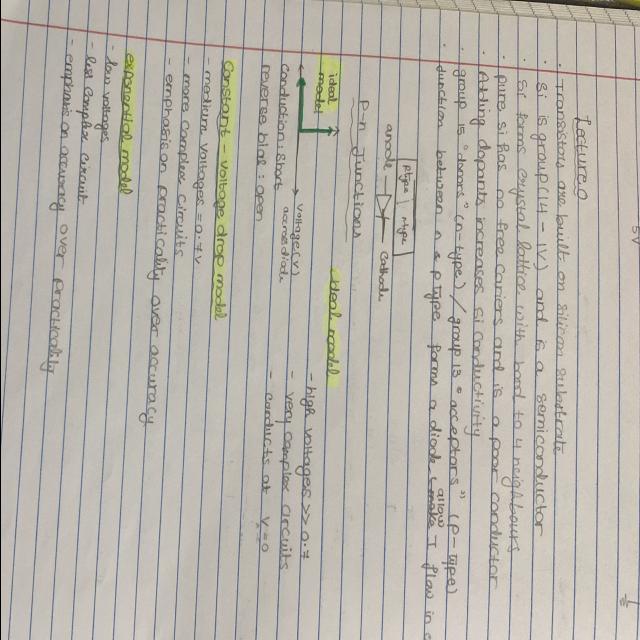 5V
Lecture 9
· Transistors are built on silicon substrate
· Si is group (14 - IV) and is a semiconductor
· Si forms crystal lattice with bond to 4 neighbours
· pure si has no free cariers and is a poor conductor
· Adding dopants increases si conductivity
· group 15 "donors" (n-type) / group 13 "acceptors" (p-type)
· Junction between n & p type forms a diode allow I flow in
ptype | ntype
anode cathode
P-n Junctions
ideal model
voltage (v) across diode
conduction: short
reverse bias: open
ideal model
- high voltages >> 0.7
- very complex circuits
- conducts at V=0
Constant - voltage drop model
- medium voltages = 0.7V
- more complex circuits
- emphasis on practicality over accuracy
exponential model
- low voltages
- less complex circuit
- emphasis on accuracy over practicality